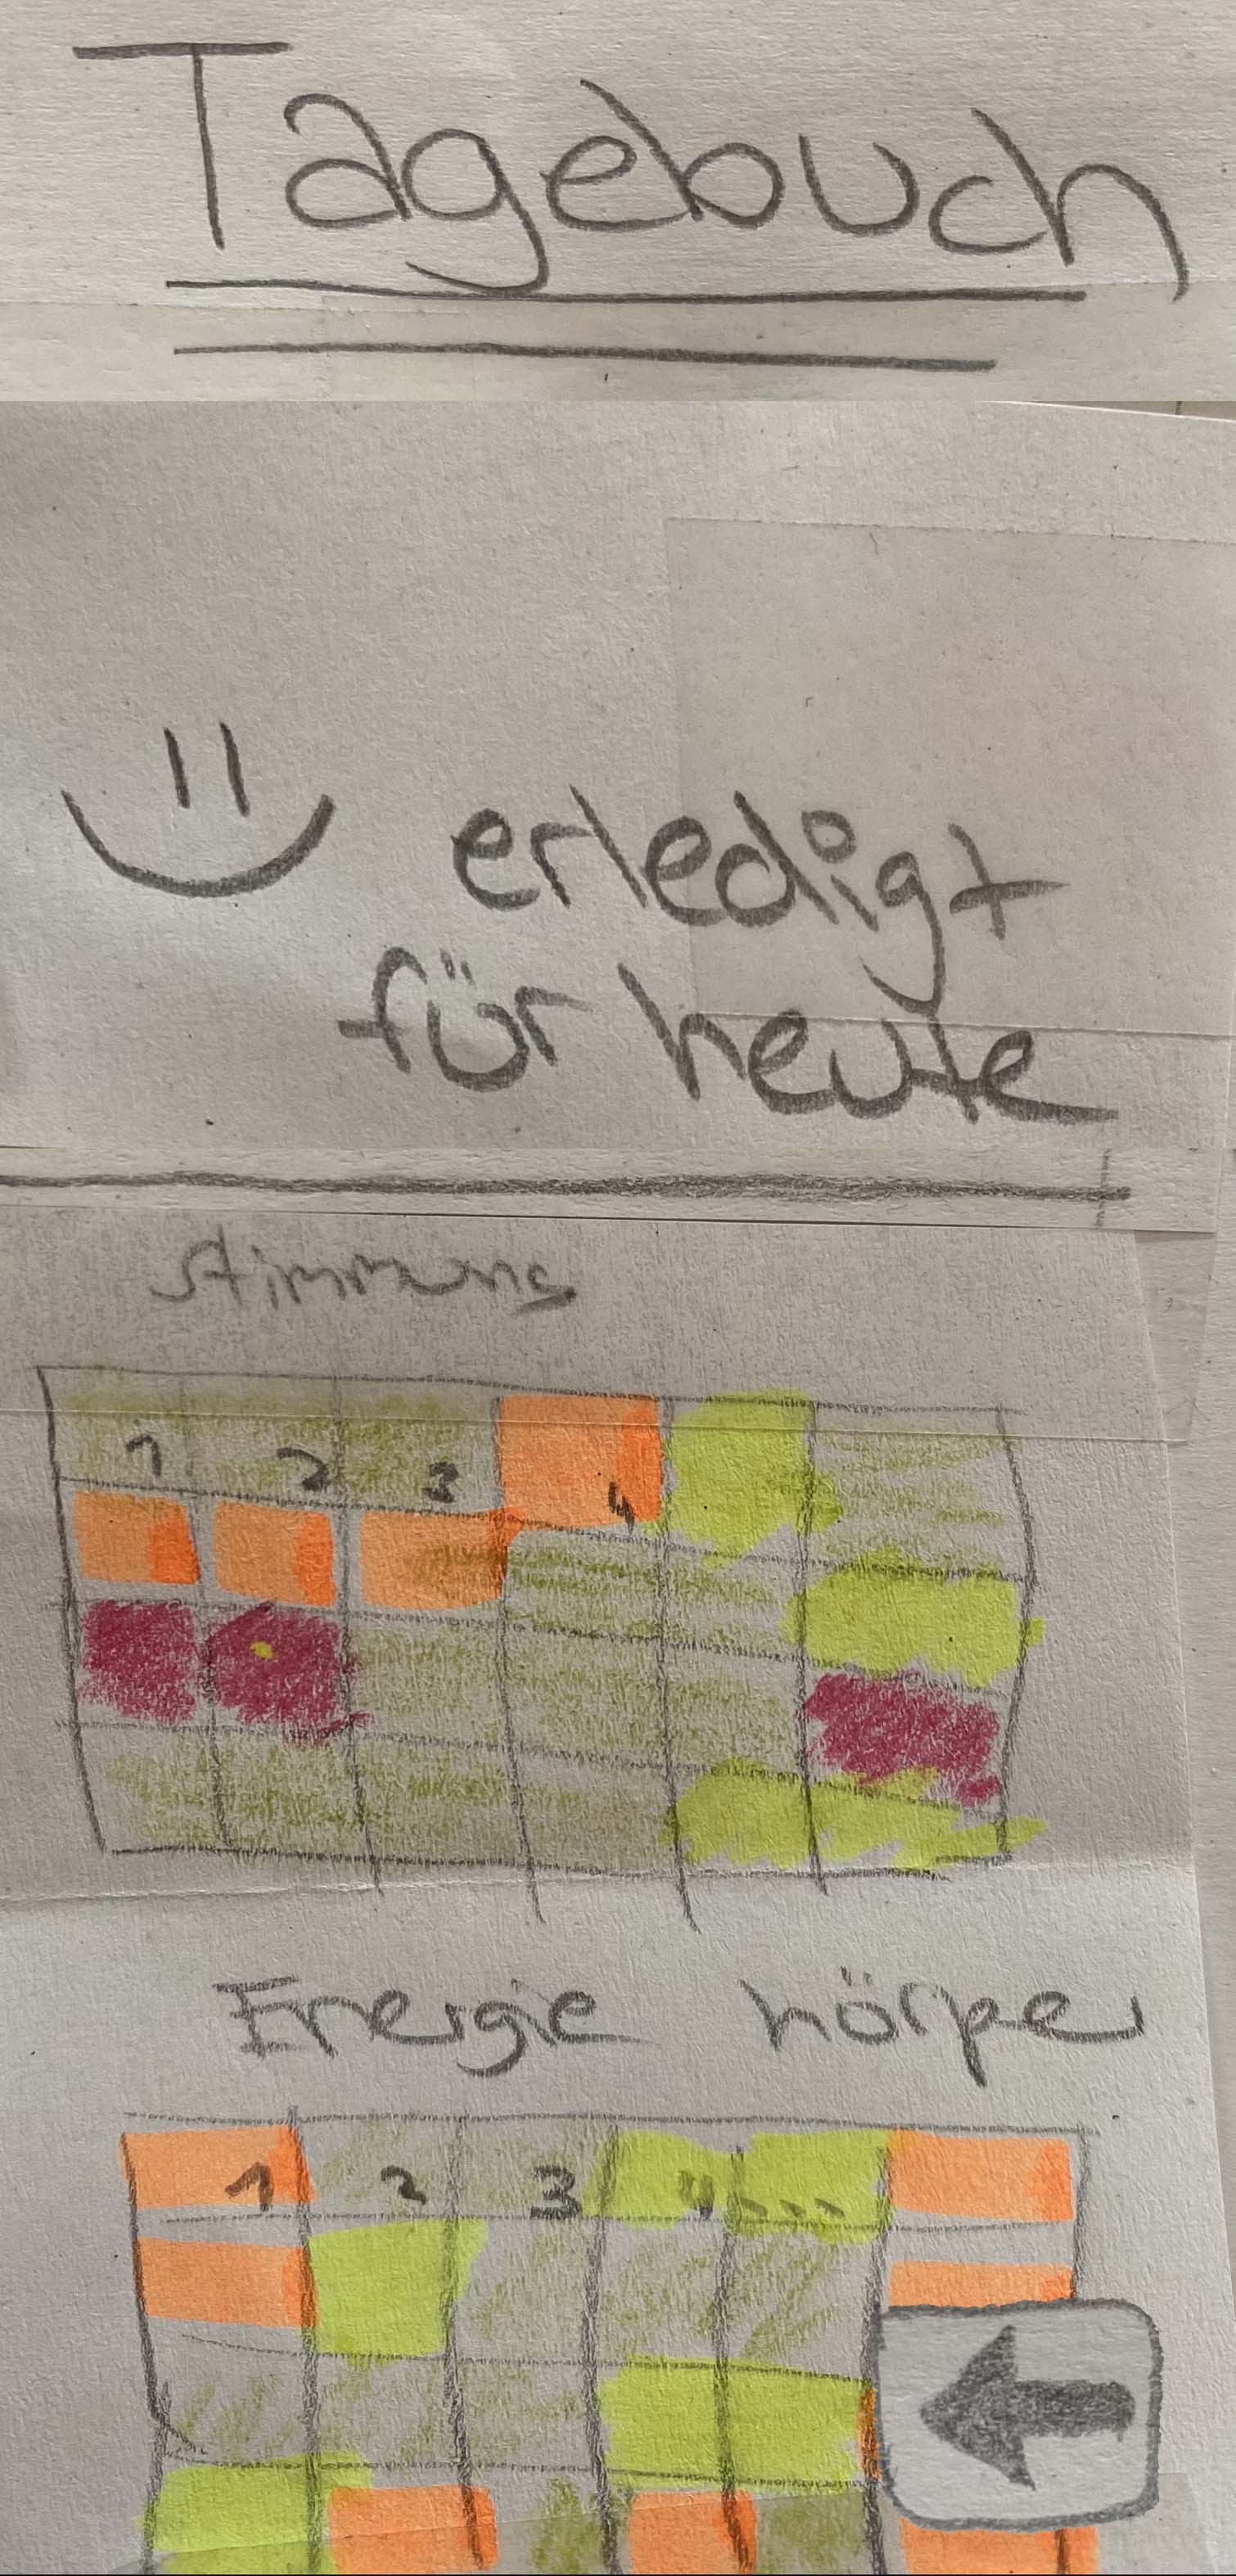 Tagebuch
erledigt
für heute
Stimmung
1 2 3 4
Energie Körper
1 2 3 4 ...